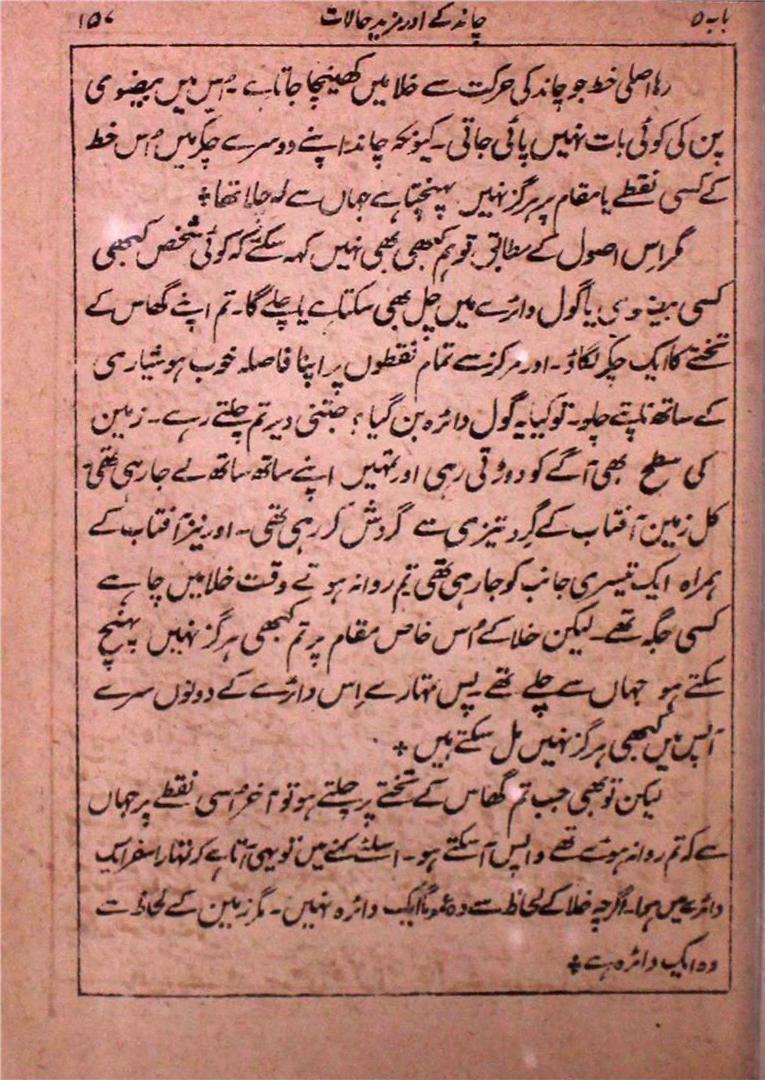 باب ۵
چاند کے اور مزید حالات
۱۵۷
رہا اصلی خط جو چاند کی حرکت سے خلا میں کھینچا جاتا ہے۔ اُس میں بیضوی
پن کی کوئی بات نہیں پائی جاتی۔ کیونکہ چاند اپنے دوسرے چکر میں اُس خط
کے کسی نقطے یا مقام پر ہرگز نہیں پہنچتا ہے جہاں سے کہ چلا تھا *
مگر اِس اصول کے مطابق تو ہم کبھی بھی نہیں کہہ سکتے کہ کوئی شخص کبھی
کسی بیضوی یا گول دائرے میں چل بھی سکتا ہے یا چلے گا۔ تم اپنے گھاس کے
تختے کا ایک چکر لگاؤ۔ اور مرکز سے تمام نقطوں پر اپنا فاصلہ خوب ہوشیاری
کے ساتھ ناپتے چلو۔ تو کیا یہ گول دائرہ بن گیا؟ جتنی دیر تم چلتے رہے۔ زمین
کی سطح بھی آگے کو دوڑتی رہی اور تمہیں اپنے ساتھ ساتھ لے جا رہی تھی۔
کل زمین آفتاب کے گِرد تیزی سے گردش کر رہی تھی۔ اور نیز آفتاب کے
ہمراہ ایک تیسری جانب کو جا رہی تھی تم روانہ ہوتے وقت خلا میں چاہے
کسی جگہ تھے۔ لیکن خلا کے اُس خاص مقام پر تم کبھی ہرگز نہیں پہنچ
سکتے ہو جہاں سے چلے تھے۔ پس تمہارے اِس دائرے کے دونوں سرے
آپس میں کبھی ہرگز نہیں مل سکتے ہیں *
لیکن تو بھی جب تم گھاس کے تختے پر چلتے ہو تو آخر اُسی نقطے پر جہاں
سے کہ تم روانہ ہوئے تھے واپس آ سکتے ہو۔ اسلئے کہنے میں تو یہی آتا ہے کہ تمہارا سفر ایک
دائرے میں ہوا۔ اگرچہ خلا کے لحاظ سے وہ گویا ایک دائرہ نہیں۔ مگر زمین کے لحاظ سے
وہ ایک دائرہ ہے *